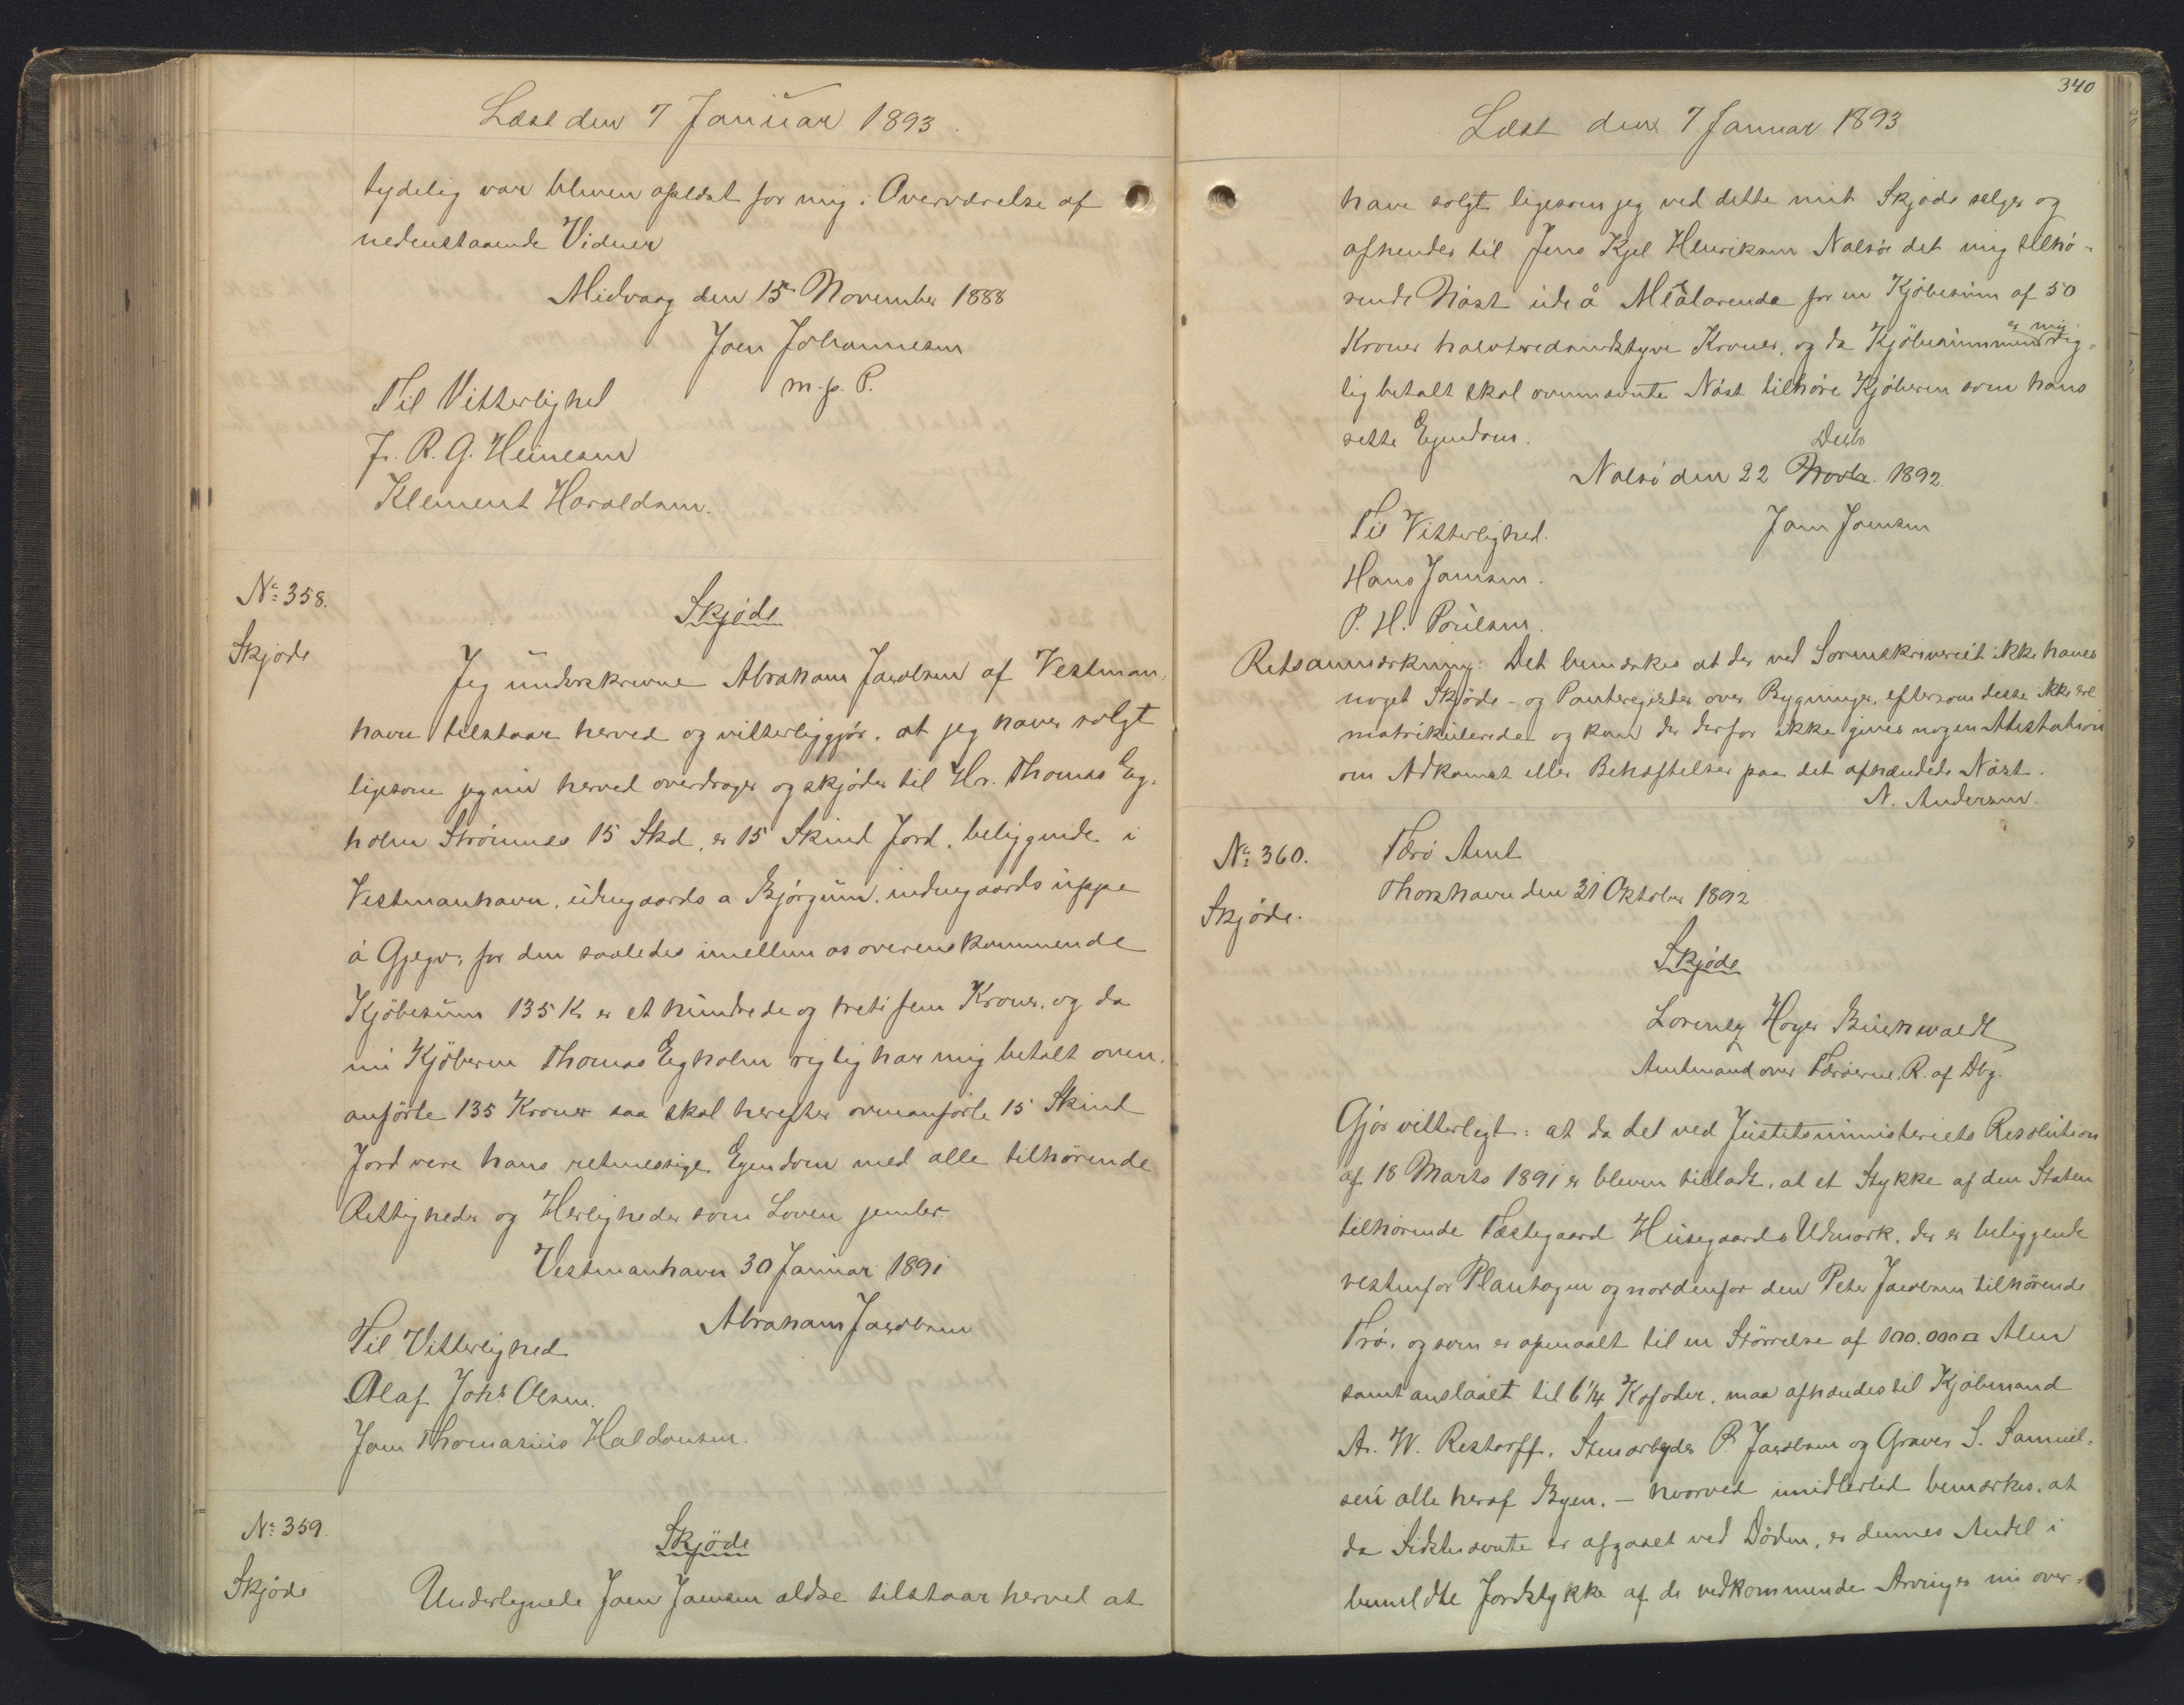 Læst den 7 Januar 1893.
tydelig var bleven oplæst for mig i Overværelse af
nedenstaaende Vidner
Midvaag den 15 November 1888
Joen Johannesen
m. p. P.
Til Vitterlighed
J. R. G. Heinesen
Klement Haraldsen.
No 358.
Skjøde
Skjøde
Jeg underskrevne Abraham Jacobsen af Vestman-
havn tilstaar herved og vitterliggjør, at jeg haver solgt
ligesom jeg nu herved overdrager og skjøder til Hr. Thomas Eg-
holm Strømnes 15 Skd, er 15 Skind Jord, beliggende i
Vestmanhavn, udengaards a Bjørgum, indengaards uppe
á Gjegv, for den saaledes imellem os overenskommende
Kjöbesum 135 Kr er et hundrede og treti fem Kroner, og da
nu Kjöberen Thomas Egholm rigtig har mig betalt oven-
anførte 135 Kroner saa skal herefter ovenanførte 15 Skind
Jord være hans retmessige Eyendom med alle tilhørende
Rettigheder og Herligheder som Loven jemler
Vestmanhavn 30 Januar 1891
Abraham Jacobsen
Til Vitterlighed
Olaf Johs Olsen.
Joen Thomasius Haldansen.
No 359.
Skjøde
Skjøde
Undertegnede Joen Joensen ældre tilstaar herved at
340
Læst den 7 Januar 1893
have solgt ligesom jeg ved dette mit Skjøde selger og
afhender til Jens Kjel Henriksen Nalsøe det mig tilhø-
rende Nøst ude å for en Kjöbesum af 50
Kroner halvtredsindstyve Kroner, og da Kjöbesummen er mig rig-
tig betalt skal ovennævnte Nöst tilhøre Kjöberen som hans
rette Egendom.
Decb
Nalsö den 22 Novbr. 1892.
Til Vitterlighed.
Joen Joensen
Hans Joensen.
P. H. Poulsen.
Retsanmærkning: Det bemærkes at der ved Sorenskriveriet ikke haves
noget Skjöde- og Panteregister over Bygninger, eftersom disse ikke ere
matrikulerede og kan der derfor ikke gives nogen Attestation
om Adkomst eller Behæftelser paa det afhændede Nöst.
N. Andersen.
No 360.
Skjøde.
Færö Amt
Thorshavn den 31 Oktober 1892
Skjøde
Lorentz Høyer Buchwaldt
Amtmand over Færøerne, R. af Dbg.
Gjør vitterligt: at da det ved Justitsministeriets Resolution
af 18 Marts 1891 er bleven tilladt, at et Stykke af den Staten
tilhørende Fæstegaard Husegaards Udmark, der er beliggende
vestenfor Plantagen og nordenfor den Peter Jacobsen tilhørende
Trø, og som er opmaalt til en Størrelse af 100.000 □ Alen
samt anslaaet til 6 1/4 Kofoder, maa afhændes til Kjøbmand
A. W. Restorff, Stenarbejder P. Jacobsen og Graver S. Samuel-
sen alle heraf Byen. – hvorved imidlertid bemærkes, at
da Sidstnævnte er afgaaet ved Døden, er dennes Andel i
bemeldte Jordstykke af de vedkommende Arvinger nu over-